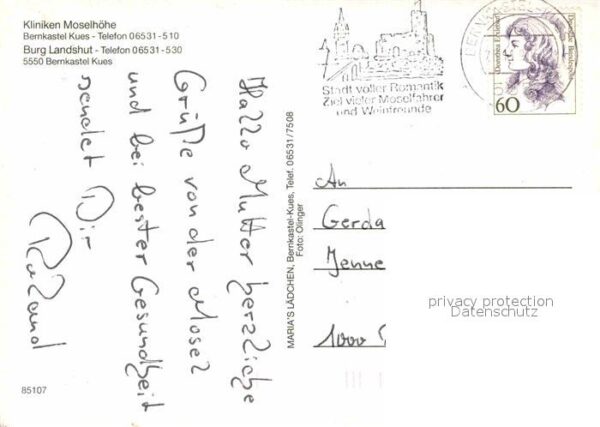 Kliniken Moselhöhe
Bernkastel Kues - Telefon 06531-510
Burg Landshut - Telefon 06531-530
5550 Bernkastel Kues
Hallo Mutter herzliche
Grüße von der Mosel
und bei bester Gesundheit
sendet Dir
Roland
85107
MARIA'S LÄDCHEN, Bernkastel-Kues, Telef. 06531/7508
Foto: Olinger
Stadt voller Romantik
Ziel vieler Moselfahrer
und Weinfreunde
Deutsche Bundespost
60
An
Gerda
Jenne
1000
privacy protection
Datenschutz